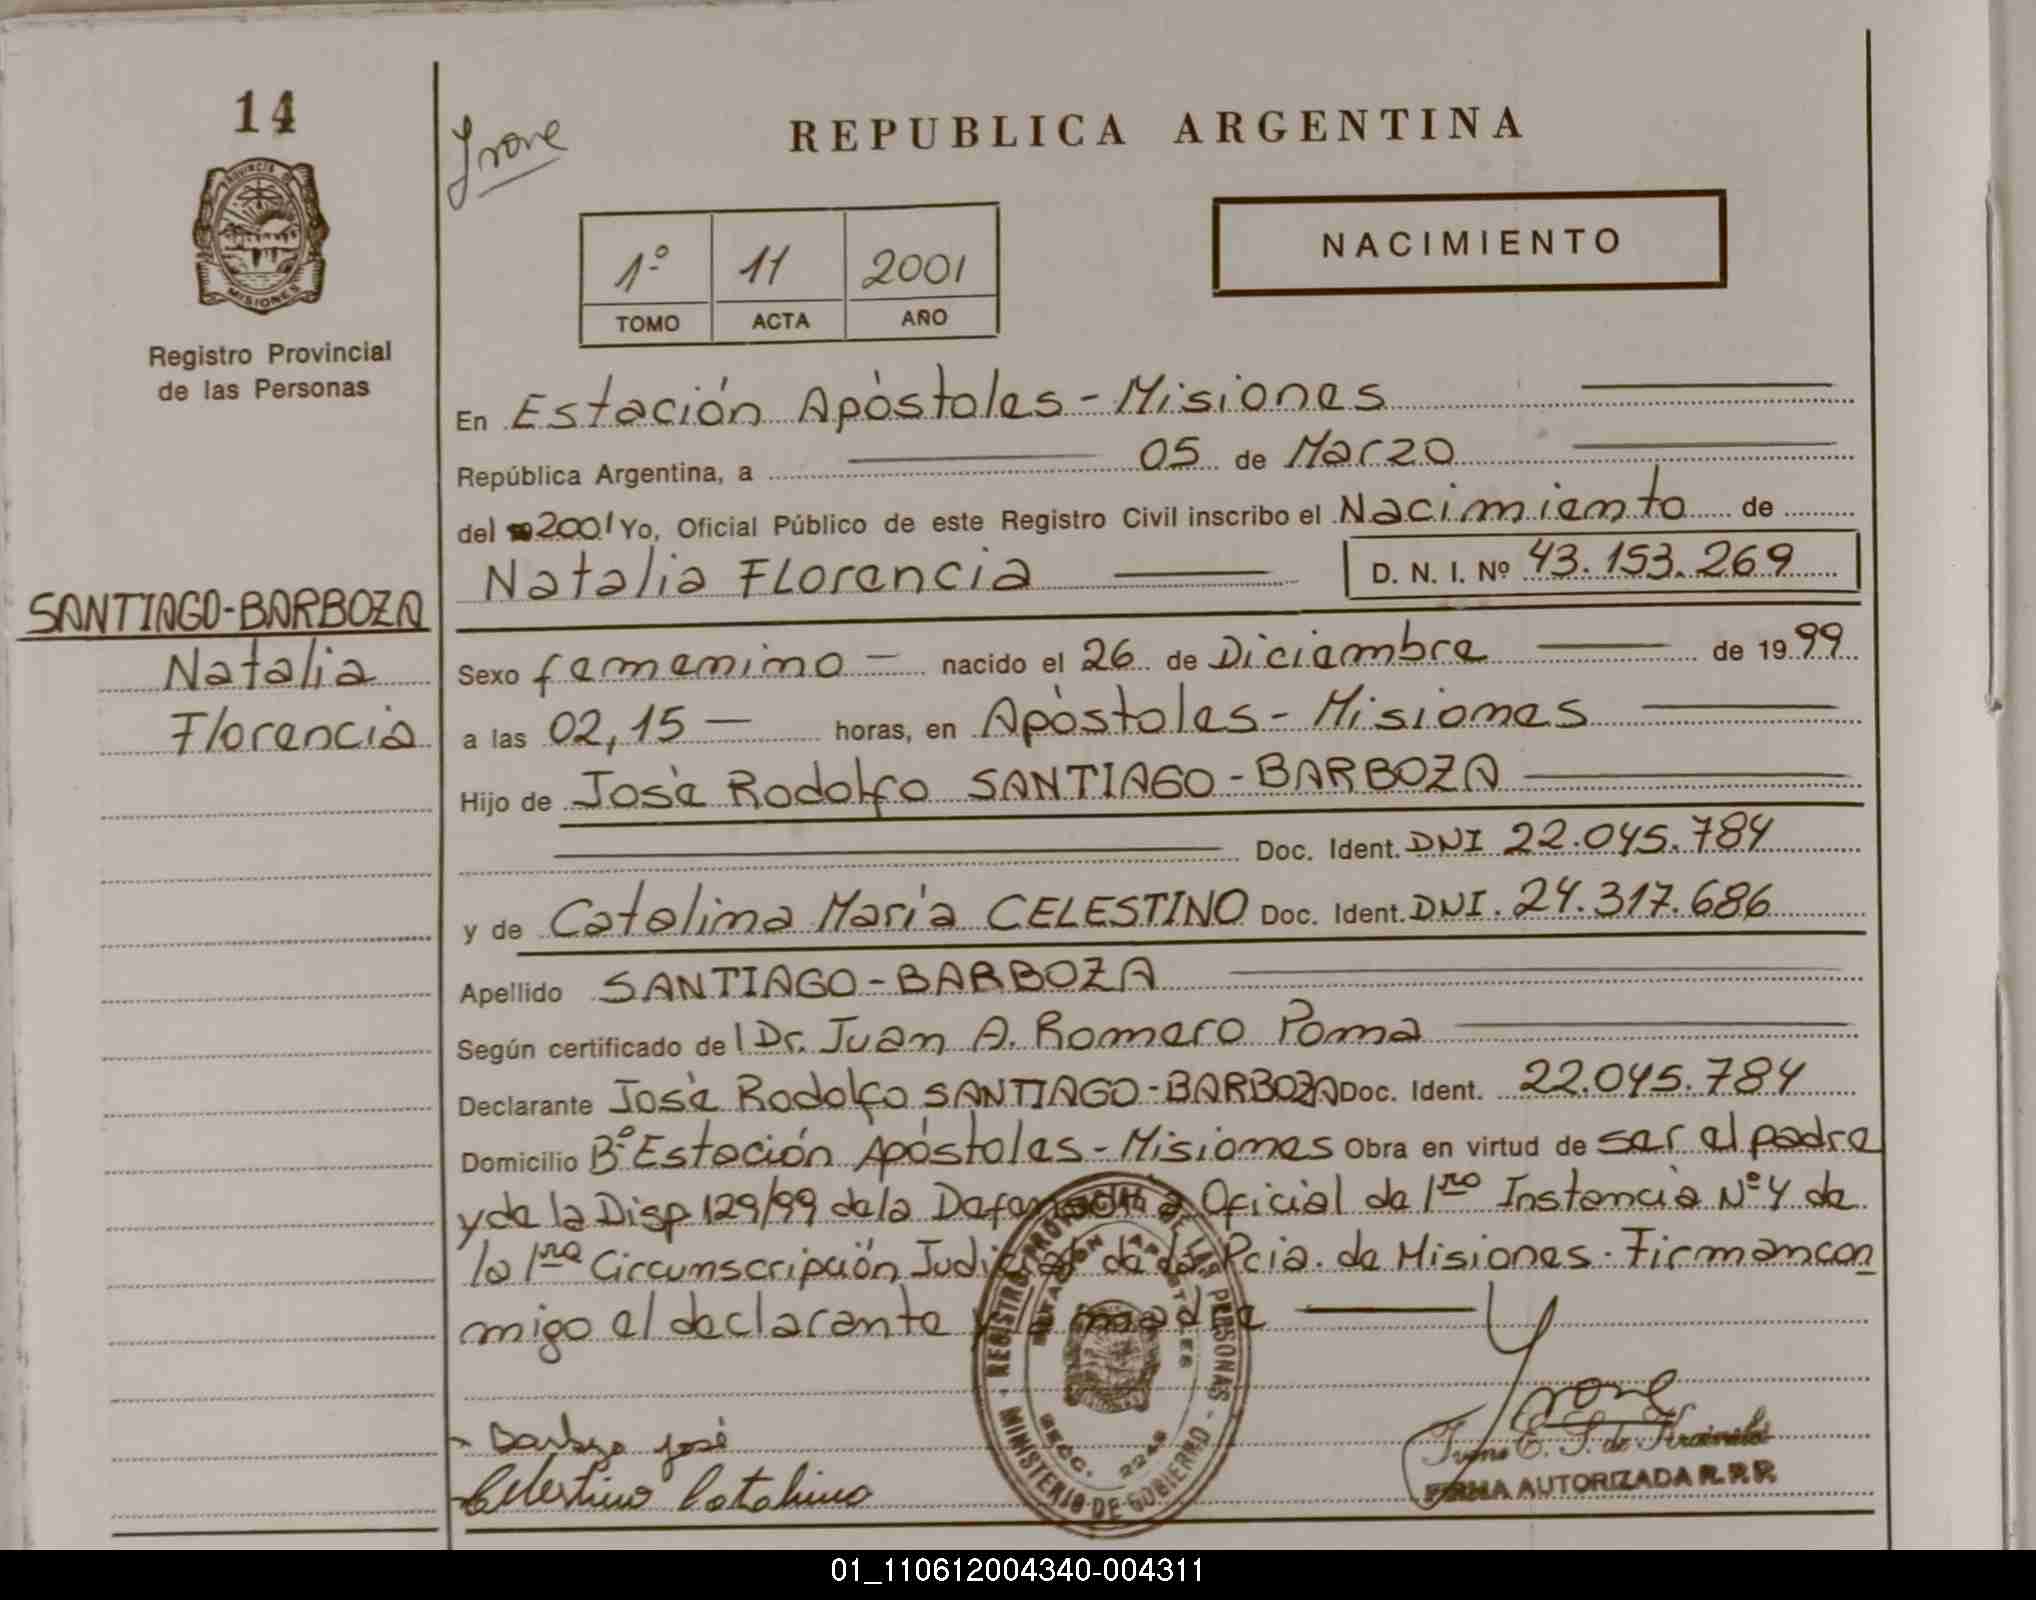 14
Irone
REPUBLICA ARGENTINA
PROVINCIA D
MISIONES
Registro Provincial
de las Personas
1º 11 2001
TOMO ACTA AÑO
NACIMIENTO
En Estación Apóstoles - Misiones
República Argentina, a 05 de Marzo
del 2001 Yo, Oficial Público de este Registro Civil inscribo el Nacimiento de
Natalia Florencia D. N. I. Nº 43.153.269
SANTIAGO-BARBOZA
Natalia
Florencia
Sexo femenino - nacido el 26 de Diciembre de 1999
a las 02,15 horas, en Apóstoles - Misiones
Hijo de José Rodolfo SANTIAGO - BARBOZA
Doc. Ident. DNI 22.045.784
y de Catalina María CELESTINO Doc. Ident. DNI. 24.317.686
Apellido SANTIAGO - BARBOZA
Según certificado de l Dr. Juan A. Romero Poma
Declarante José Rodolfo SANTIAGO - BARBOZA Doc. Ident. 22.045.784
Domicilio Bº Estación Apóstoles - Misiones Obra en virtud de ser el padre
y de la Disp 129/99 de la Defensoría Oficial de 1ro Instancia Nº 4 de
la 1ra Circunscripción Judicial de la Pcia. de Misiones. Firman con
migo el declarante y la madre
REGISTRO PROVINCIAL DE LAS PERSONAS - MINISTERIO DE GOBIERNO -
ESTACION APOSTOLES
SECC. 2248
Barboza José
Celestino Catalina
Irone
FIRMA AUTORIZADA R.P.P.
01_110612004340-004311